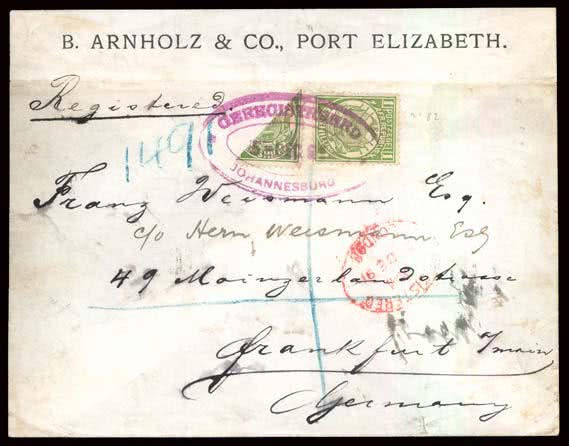 B. ARNHOLZ & CO., PORT ELIZABETH.
Registered.
GEREGISTREERD
JOHANNESBURG
1491
Franz Weismann Esq.
c/o Herrn Weismann Esq
49 Mainzerlandstrasse
Frankfurt a/main
Germany